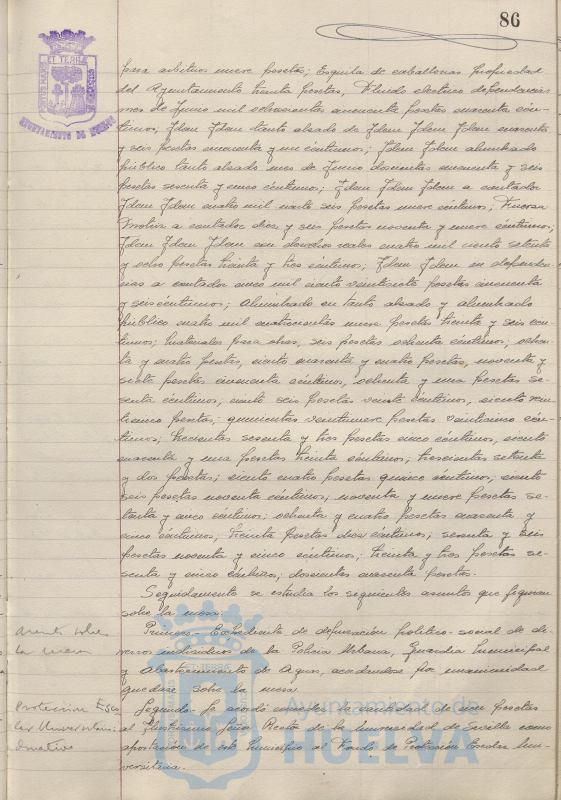 86
AYUNTAMIENTO DE HUELVA
para arbitrios nueve pesetas; Esquila de caballerias propiedad
del Ayuntamiento treinta pesetas, Fluido electrico dependencias
mes de Junio mil ochocientas cincuenta pesetas cuarenta cén-
timos; Idem Idem tanto alzado de Idem Idem Idem cuarenta
y seis pesetas cincuenta y un céntimos; Idem Idem alumbrado
público tanto alzado mes de Junio doscientas cincuenta y seis
pesetas sesenta y cinco céntimos; Idem Idem Idem a contador
Idem Idem cuatro mil ciento seis pesetas nueve céntimos; Fuerza
Motriz a contador diez y seis pesetas noventa y nueve céntimos;
Idem Idem Idem con derechos reales cuatro mil ciento setenta
y ocho pesetas treinta y tres céntimos; Idem Idem en dependen-
cias a contador cinco mil ciento veintisiete pesetas cincuenta
y seis céntimos; alumbrado en tanto alzado y alumbrado
público cuatro mil cuatrocientas nueve pesetas treinta y seis cén-
timos; materiales para obras, seis pesetas ochenta céntimos; ochen-
ta y cuatro pesetas, ciento cuarenta y cuatro pesetas, noventa y
siete pesetas cincuenta céntimos, ochenta y una pesetas se-
senta céntimos, ciento seis pesetas veinte céntimos, ciento vein-
ticinco pesetas; quinientas veintinueve pesetas veinticinco cén-
timos; trescientas sesenta y tres pesetas cinco céntimos, ciento
cuarenta y una pesetas treinta céntimos; trescientas setenta
y dos pesetas; ciento cuatro pesetas quince céntimos; ciento
seis pesetas noventa céntimos; noventa y nueve pesetas se-
tenta y cinco céntimos; ochenta y cuatro pesetas cuarenta y
cinco céntimos, treinta pesetas diez céntimos; sesenta y seis
pesetas noventa y cinco céntimos; treinta y tres pesetas se-
senta y cinco céntimos; doscientas cuarenta pesetas.
Seguidamente se estudia los siguientes asuntos que figuran
sobre la mesa.
Asuntos sobre
la mesa
Primero = Expediente de depuración politico-social de di-
versos individuos de la Policia Urbana, Guardia Municipal
y Abastecimiento de Aguas, acordandose por unanimidad
quedase sobre la mesa.
Proteccion Esco-
lar Universitaria
Donativo
Segundo = Se acordó conceder la cantidad de cien pesetas
al Ilustrisimo Señor Rector de la Universidad de Sevilla como
aportación de este Municipio al Fondo de Protección Escolar Uni-
versitaria.
Ayuntamiento de
HUELVA